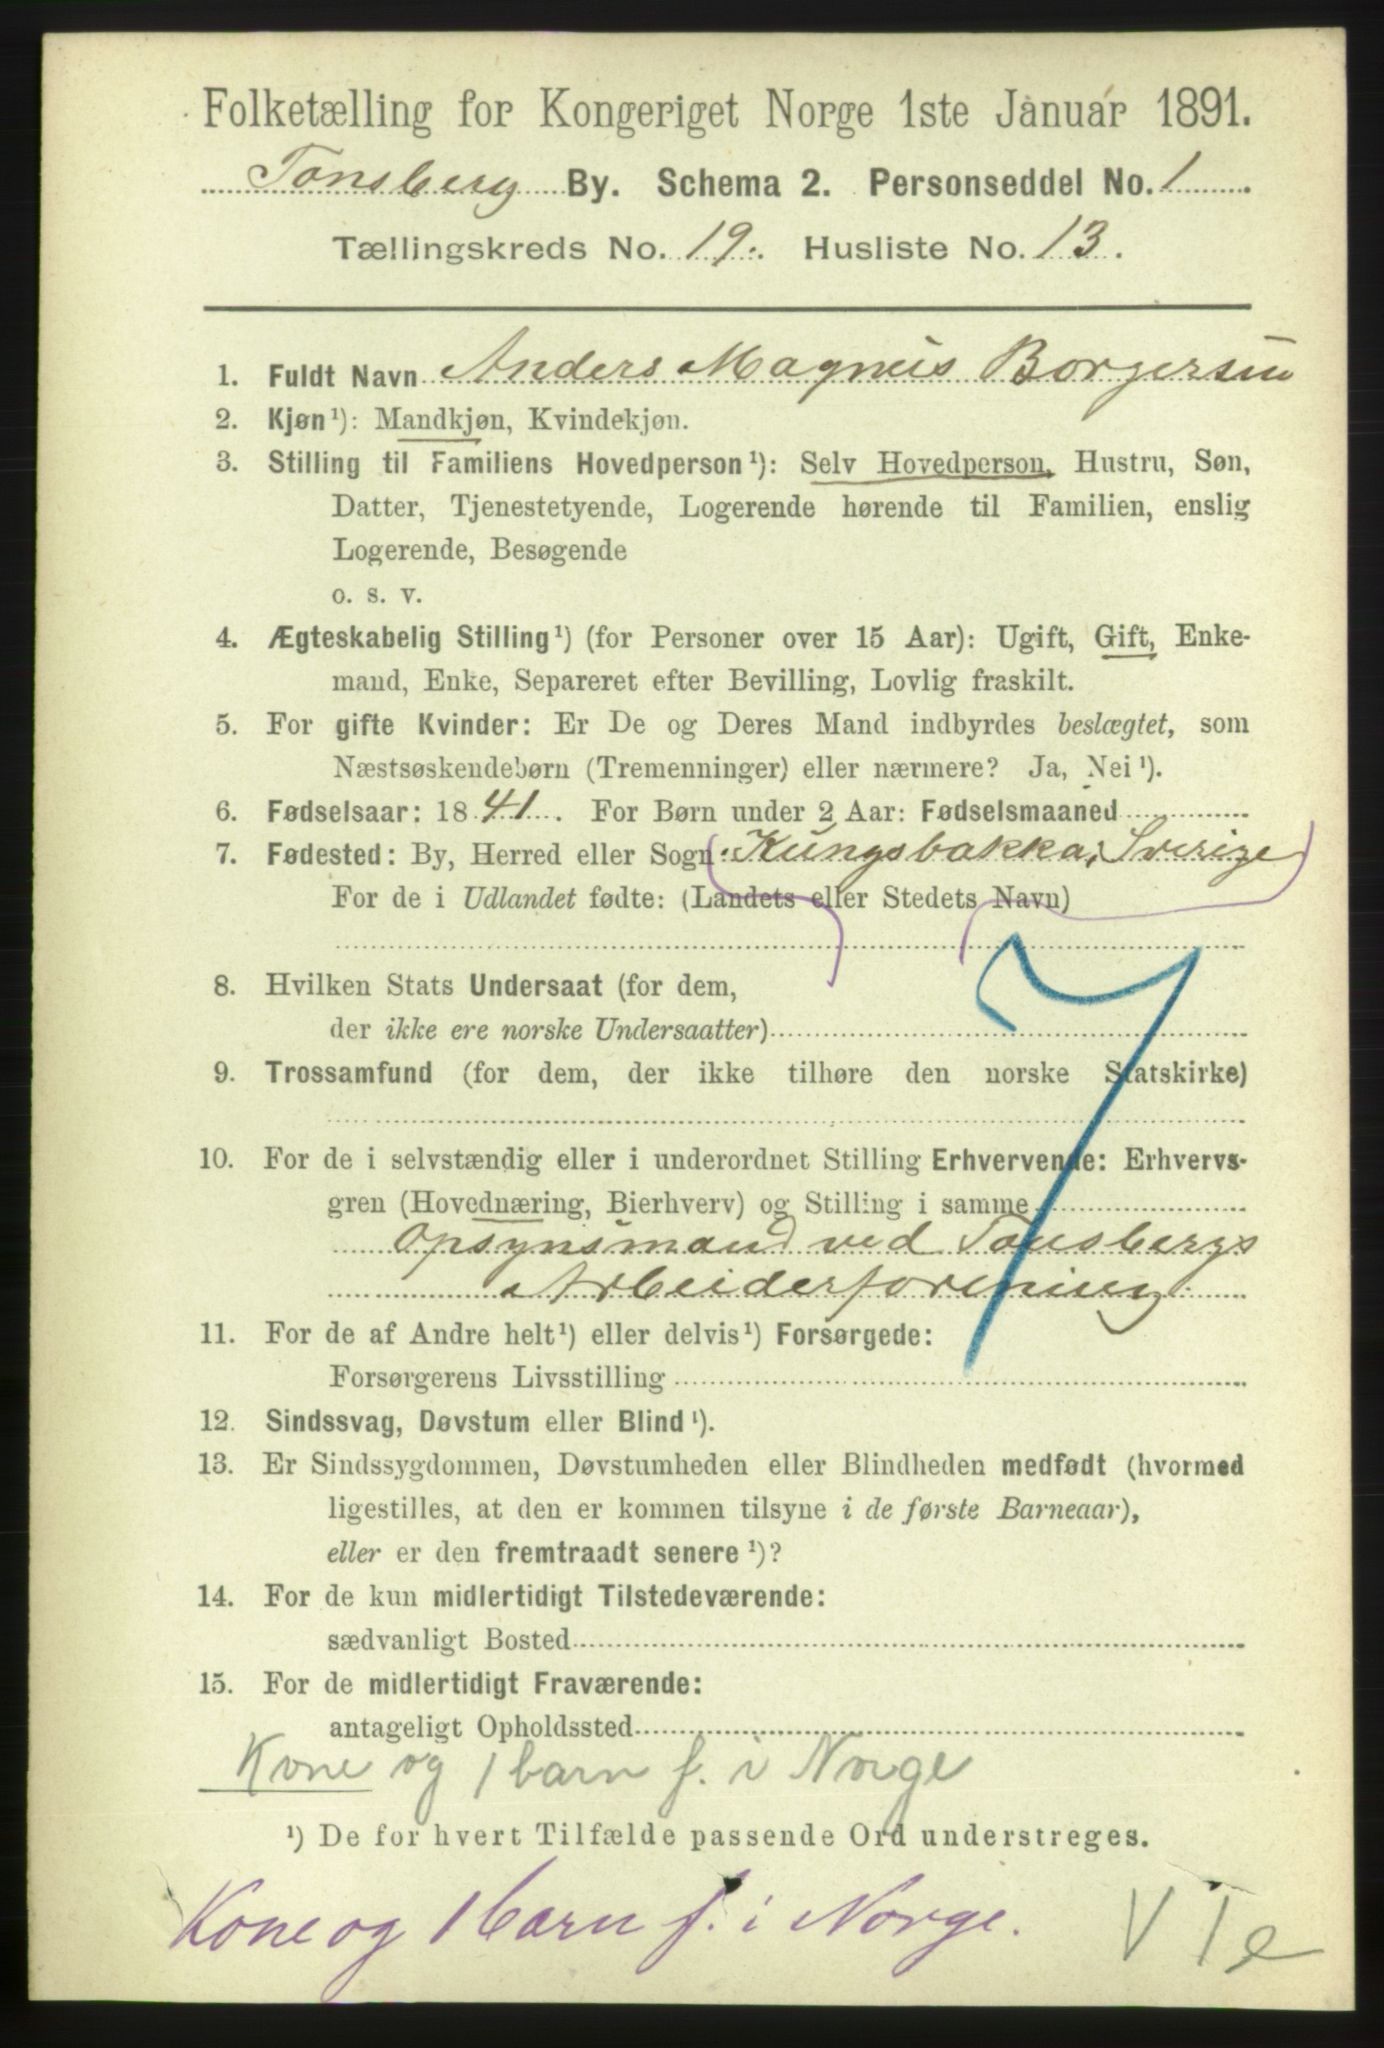 Folketælling for Kongeriget Norge 1ste Januar 1891.
Tønsberg By. Schema 2. Personseddel No. 1
Tællingskreds No. 19. Husliste No. 13.
1. Fuldt Navn Anders Magnus Borgersen
2. Kjøn¹): Mandkjøn, Kvindekjøn.
3. Stilling til Familiens Hovedperson¹): Selv Hovedperson, Hustru, Søn,
Datter, Tjenestetyende, Logerende hørende til Familien, enslig
Logerende, Besøgende
o. s. v.
4. Ægteskabelig Stilling¹) (for Personer over 15 Aar): Ugift, Gift, Enke-
mand, Enke, Separeret efter Bevilling, Lovlig fraskilt.
5. For gifte Kvinder: Er De og Deres Mand indbyrdes beslægtet, som
Næstsøskendebørn (Tremenninger) eller nærmere? Ja, Nei¹).
6. Fødselsaar: 1841. For Børn under 2 Aar: Fødselsmaaned
7. Fødested: By, Herred eller Sogn Kungsbakka, Sverige
For de i Udlandet fødte: (Landets eller Stedets Navn)
8. Hvilken Stats Undersaat (for dem,
der ikke ere norske Undersaatter)
9. Trossamfund (for dem, der ikke tilhøre den norske Statskirke)
10. For de i selvstændig eller i underordnet Stilling Erhvervende: Erhvervs-
gren (Hovednæring, Bierhverv) og Stilling i samme
Opsynsmand ved Tønsbergs
Arbeiderforening
11. For de af Andre helt¹) eller delvis¹) Forsørgede:
Forsørgerens Livsstilling
12. Sindssvag, Døvstum eller Blind¹).
13. Er Sindssygdommen, Døvstumheden eller Blindheden medfødt (hvormed
ligestilles, at den er kommen tilsyne i de første Barneaar),
eller er den fremtraadt senere¹)?
14. For de kun midlertidigt Tilstedeværende:
sædvanligt Bosted
15. For de midlertidigt Fraværende:
antageligt Opholdssted
Kone og 1 barn f. i Norge
¹) De for hvert Tilfælde passende Ord understreges.
Kone og 1 barn f. i Norge.